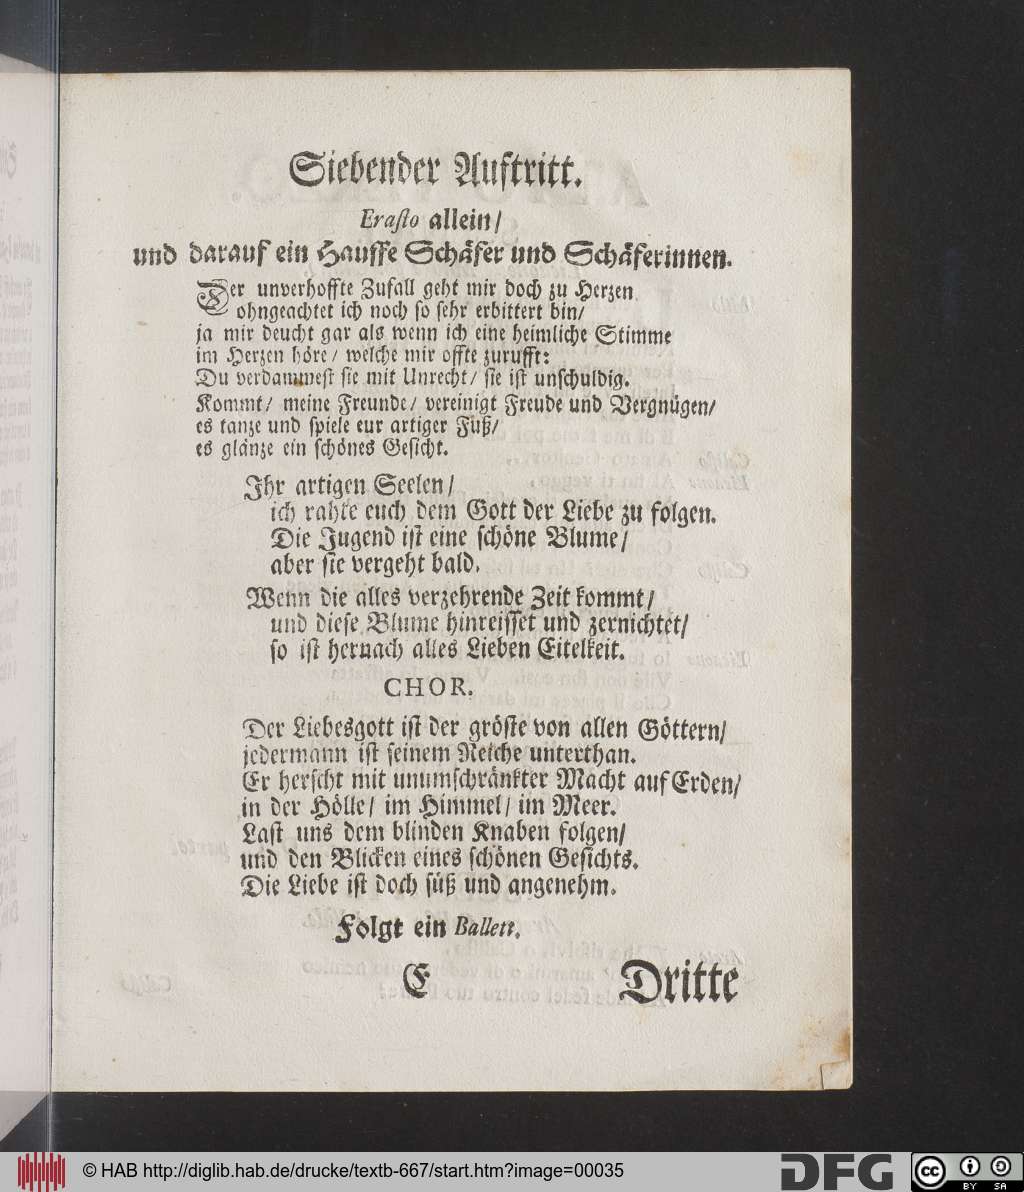 Siebender Auftritt.
Erasto allein/
und darauf ein Hauffe Schäfer und Schäferinnen.
Der unverhoffte Zufall geht mir doch zu Herzen
ohngeachtet ich noch so sehr erbittert bin/
ja mir deucht gar als wenn ich eine heimliche Stimme
im Herzen höre/ welche mir offte zurufft:
Du verdammest sie mit Unrecht/ sie ist unschuldig.
Kommt/ meine Freunde/ vereinigt Freude und Vergnügen/
es tanze und spiele eur artiger Fuß/
es glänze ein schönes Gesicht.
Ihr artigen Seelen/
ich rahte euch dem Gott der Liebe zu folgen.
Die Jugend ist eine schöne Blume/
aber sie vergeht bald.
Wenn die alles verzehrende Zeit kommt/
und diese Blume hinreisset und zernichtet/
so ist hernach alles Lieben Eitelkeit.
CHOR.
Der Liebesgott ist der gröste von allen Göttern/
jedermann ist seinem Reiche unterthan.
Er herscht mit unumschränkter Macht auf Erden/
in der Hölle/ im Himmel/ im Meer.
Last uns dem blinden Knaben folgen/
und den Blicken eines schönen Gesichts.
Die Liebe ist doch süß und angenehm.
Folgt ein Ballett.
E Dritte
© HAB http://diglib.hab.de/drucke/textb-667/start.htm?image=00035
DFG
cc BY SA